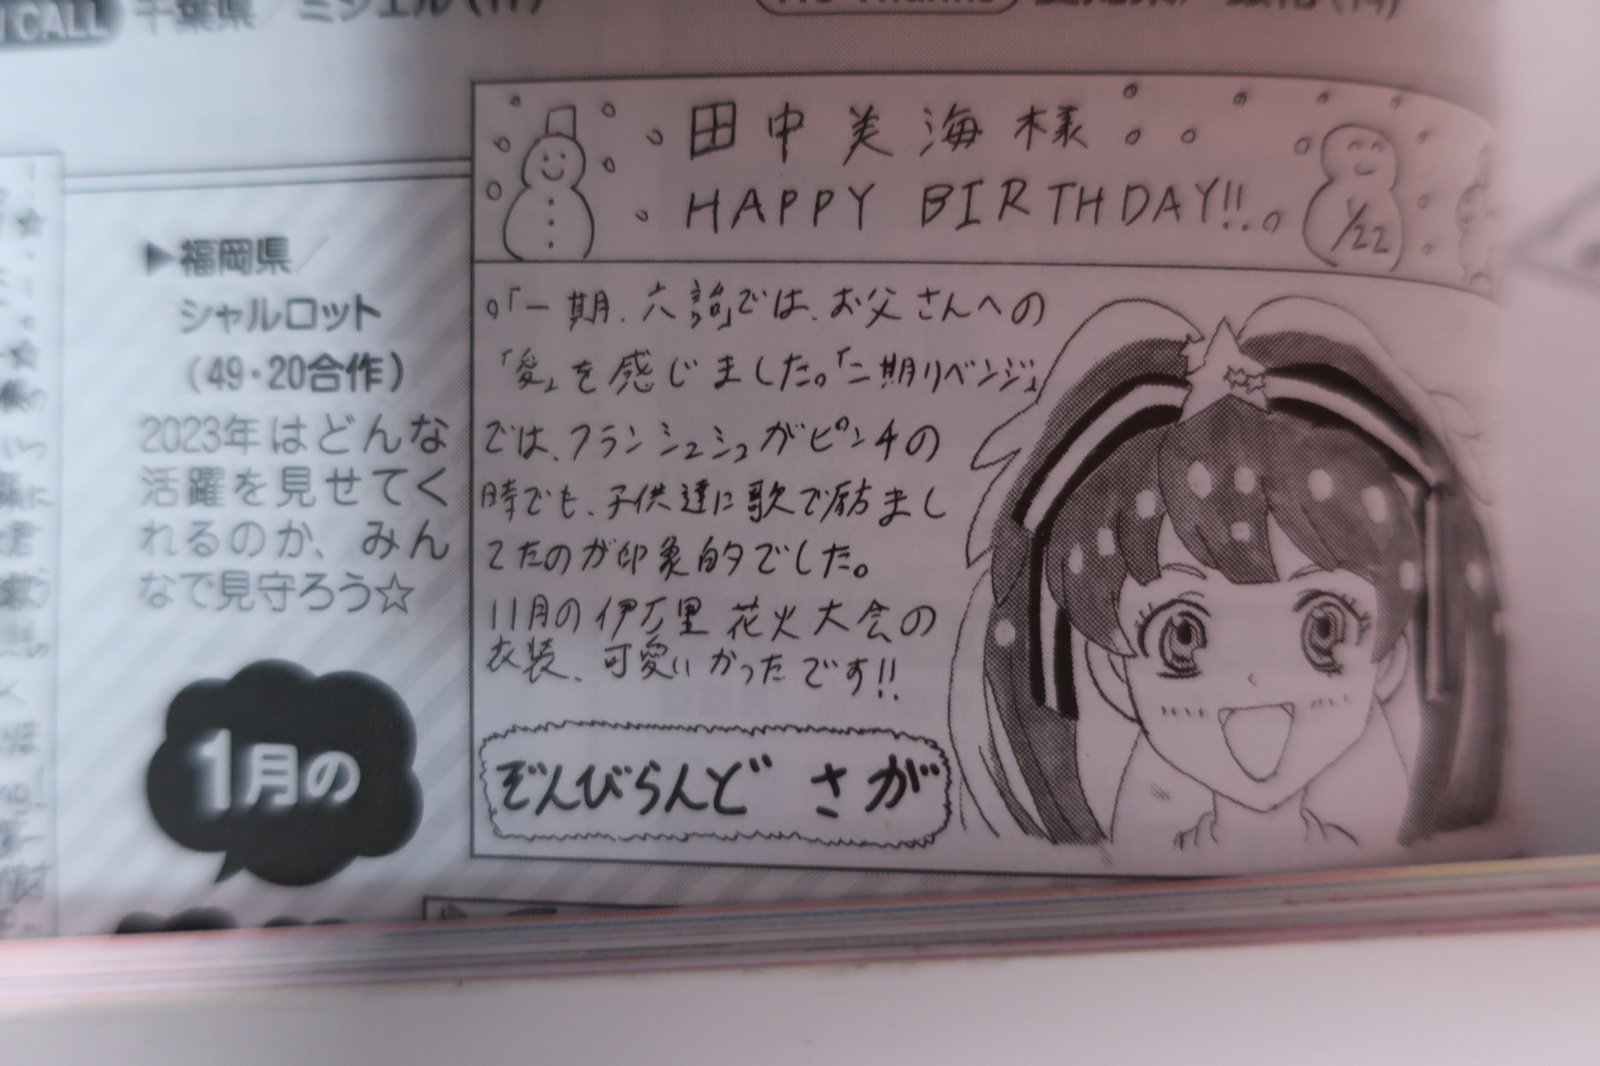 CALL 千葉県／ミシェル(17)
田中美海様
HAPPY BIRTHDAY!!
1/22
▶福岡県／
シャルロット
(49・20合作)
2023年はどんな
活躍を見せてく
れるのか、みん
なで見守ろう☆
1月の
「一期、六話」では、お父さんへの
「愛」を感じました。「二期リベンジ」
では、フランシュシュがピンチの
時でも、子供達に歌で励まし
てたのが印象的でした。
11月の伊万里花火大会の
衣装、可愛いかったです!!
ぞんびらんど さが